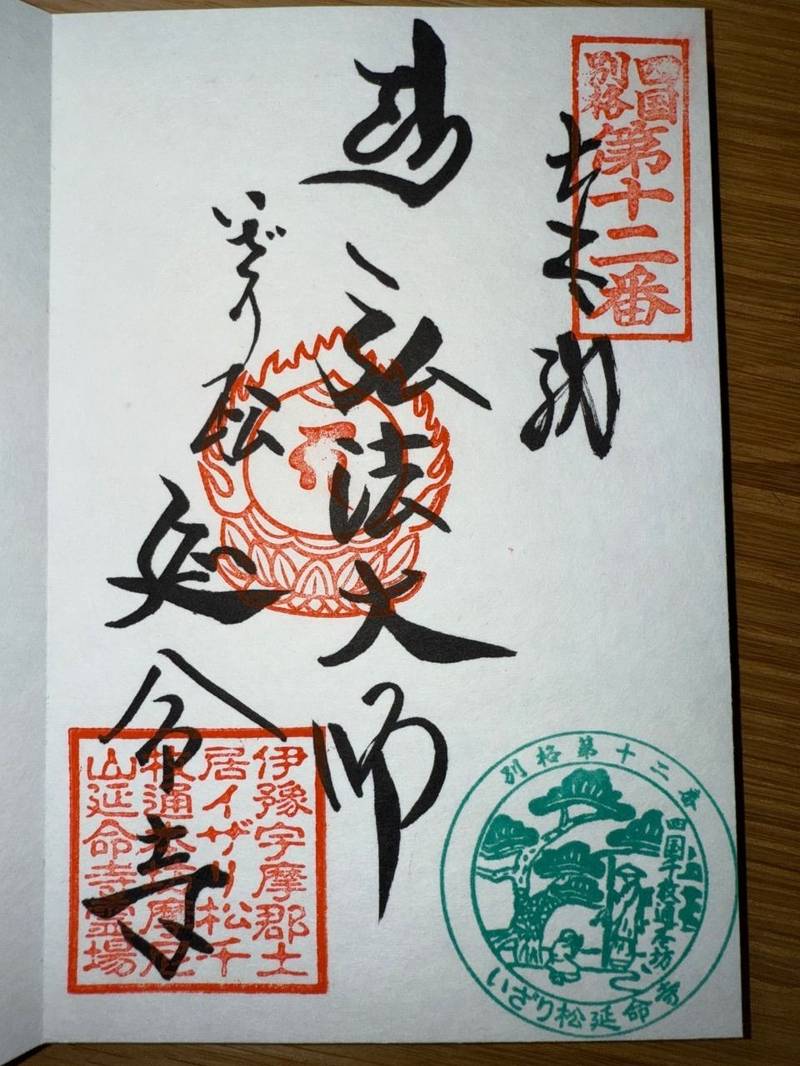 四国
別格
第十二番
奉納
弘法大師
いざり松
延命寺
伊豫宇摩郡土
居イザリ松千
枚通本
山延命寺霊場
別格第十二番
いざり松延命寺